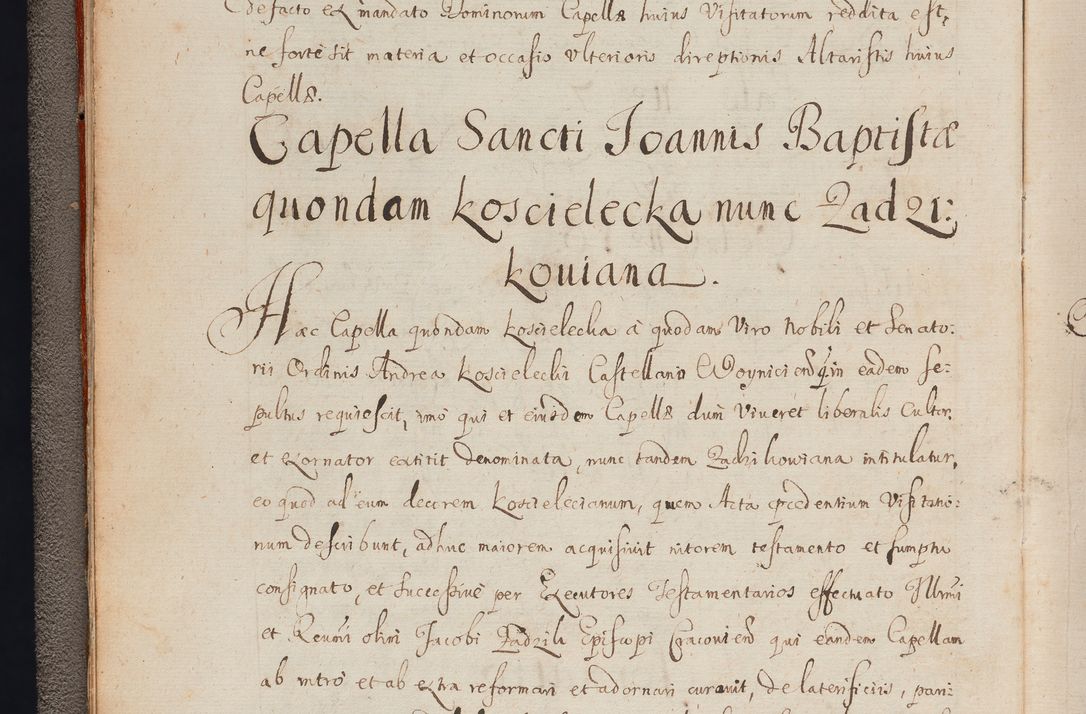 de facto ex mandato Dominorum Capellæ huius Visitatorum reddita est,
ne forte sit materia et occasio Ulterioris direptionis Altaristis huius
Capellæ.
Capella Sancti Ioannis Baptistæ
quondam Koscielecka nunc Zadzi:
koviana.
Hæc Capella quondam Koscielecka à quodam Viro Nobili et Senato:
rii Ordinis Andrea Koscielecki Castellano Woynicien̄ qui in eadem se:
pultus requiescit, imò qui et eiusdem Capellæ dum Viveret liberalis Cultor,
et exornator extitit denominata, nunc tandem Zadzikowiana intitulatur,
eo quòd ad eum decorem Koscielecianum, quem Acta præcedentium Visitatio:
num describunt, adhuc maiorem acquisivit nitorem testamento et sumptu
consignato, et successivè per Executores Testamentarios effectuato Illrmi
et Revmi olim Jacobi Zadzik Episcopi Cracovien̄ qui eandem Capellam
ab intrò et ab extra reformari et adornari curavit, de laterificiis, pari: